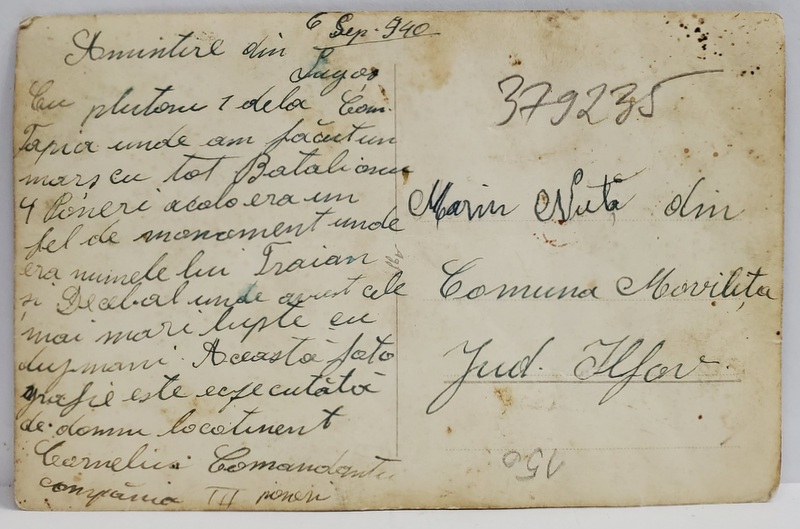 6 Sep. 940
Amintire din
Lugoj
Cu plutonu 1 dela Com.
Tapia unde am făcut un
marș cu tot Batalionu
4 Poneri acolo era un
fel de monoment unde
era numele lui Traian
și Decebal unde avust cele
mai mari lupte cu
dușmani. Această foto
grafie este ecsecutată
de domnu locotinent
Corneliu Comandantu
compănia III poneri
379235
Marin Nută din
Comuna Movilița
Jud. Ilfov
150